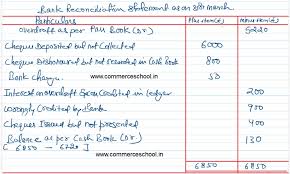 Bank Reconciliation Statement as on 31st March
Particulars Plus item(s) minus item(s)
overdraft as per Pass Book (Dr.) 5220
Cheque Deposited but not Collected 6000
Cheque Dishonoured but not recorded in Cash Book 800
Bank charges 50
Interest on overdraft Credited in ledger 200
wrongly Credited by Bank 900
Cheques Issued but not presented 400
Balance as per Cash Book (Dr.) 130
[6850 - 6720]
6850 6850
www.commerceschool.in
www.commerceschool.in